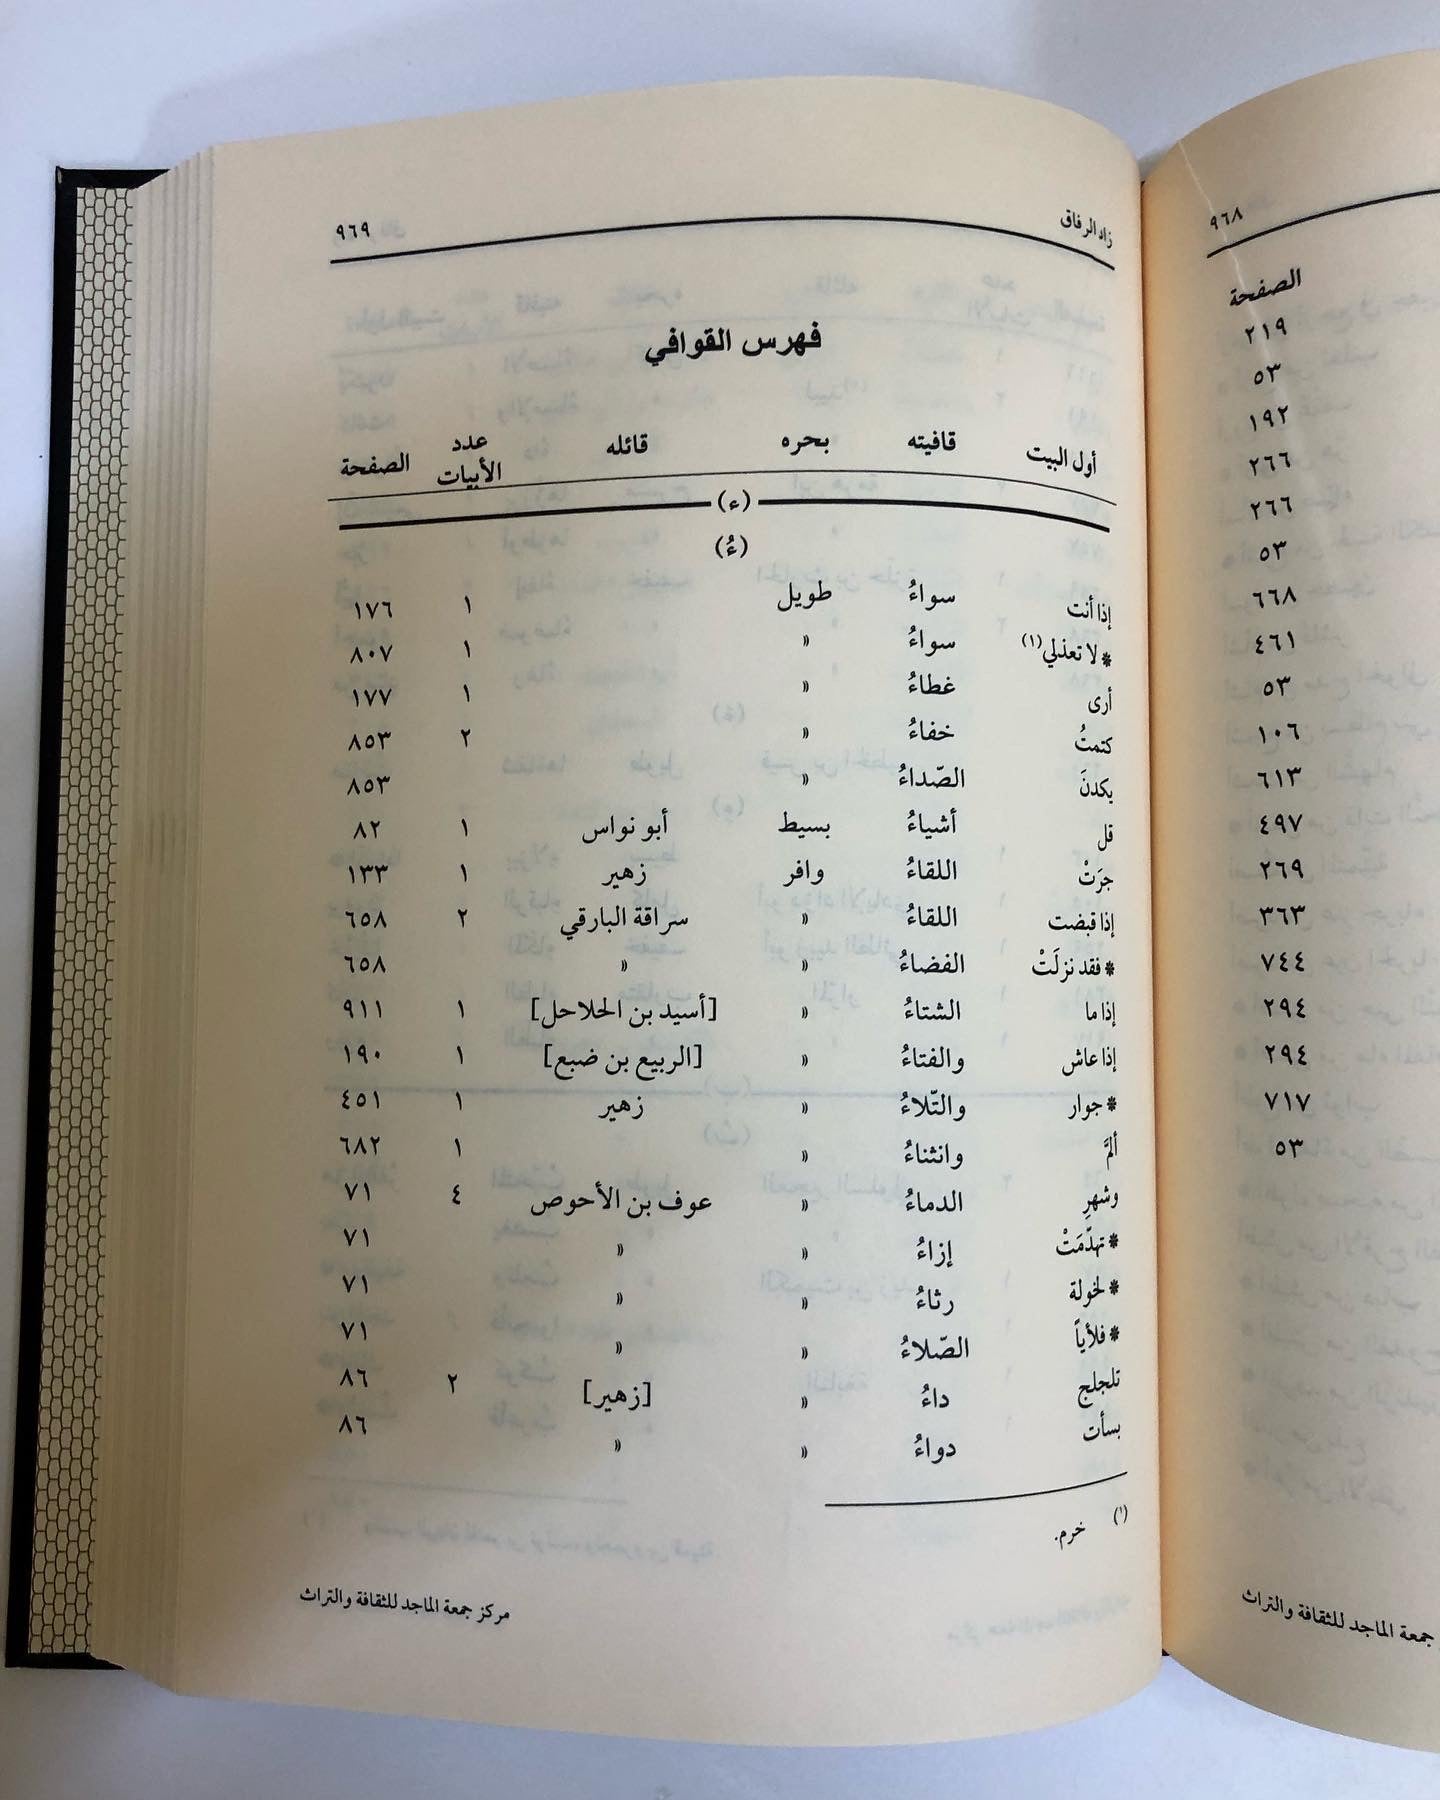 زاد الرفاق ٩٦٩
فهرس القوافي
أول البيت قافيته بحره قائله عدد الأبيات الصفحة
(ء)
(ءُ)
إذا أنت سواءُ طويل ١ ١٧٦
* لا تعذلي(١) سواءُ » ١ ٨٠٧
أرى غطاءُ » ١ ١٧٧
كتمتُ خفاءُ » ٢ ٨٥٣
يكدنَ الصّداءُ » ٨٥٣
قل أشياءُ بسيط أبو نواس ١ ٨٢
جرَتْ اللقاءُ وافر زهير ١ ١٣٣
إذا قبضت اللقاءُ » سراقة البارقي ٢ ٦٥٨
* فقد نزلَتْ الفضاءُ » » ٦٥٨
إذا ما الشتاءُ » [أسيد بن الحلاحل] ١ ٩١١
إذا عاش والفتاءُ » [الربيع بن ضبع] ١ ١٩٠
* جوار والتّلاءُ » زهير ١ ٤٥١
ألمَّ وانثناءُ » ١ ٦٨٢
وشهرِ الدماءُ » عوف بن الأحوص ٤ ٧١
* تهدّمَتْ إزاءُ » » ٧١
* لخولة رثاءُ » » ٧١
* فلأياً الصّلاءُ » » ٧١
تلجلج داءُ » [زهير] ٢ ٨٦
بسأت دواءُ » » ٨٦
(١) خرم.
مركز جمعة الماجد للثقافة والتراث
٩٦٨
الصفحة
٢١٩
٥٣
١٩٢
٢٦٦
٢٦٦
٥٣
٦٦٨
٤٦١
٥٣
١٠٦
٦١٣
٤٩٧
٢٦٩
٣٦٣
٧٤٤
٢٩٤
٢٩٤
٧١٧
٥٣
جمعة الماجد للثقافة والتراث